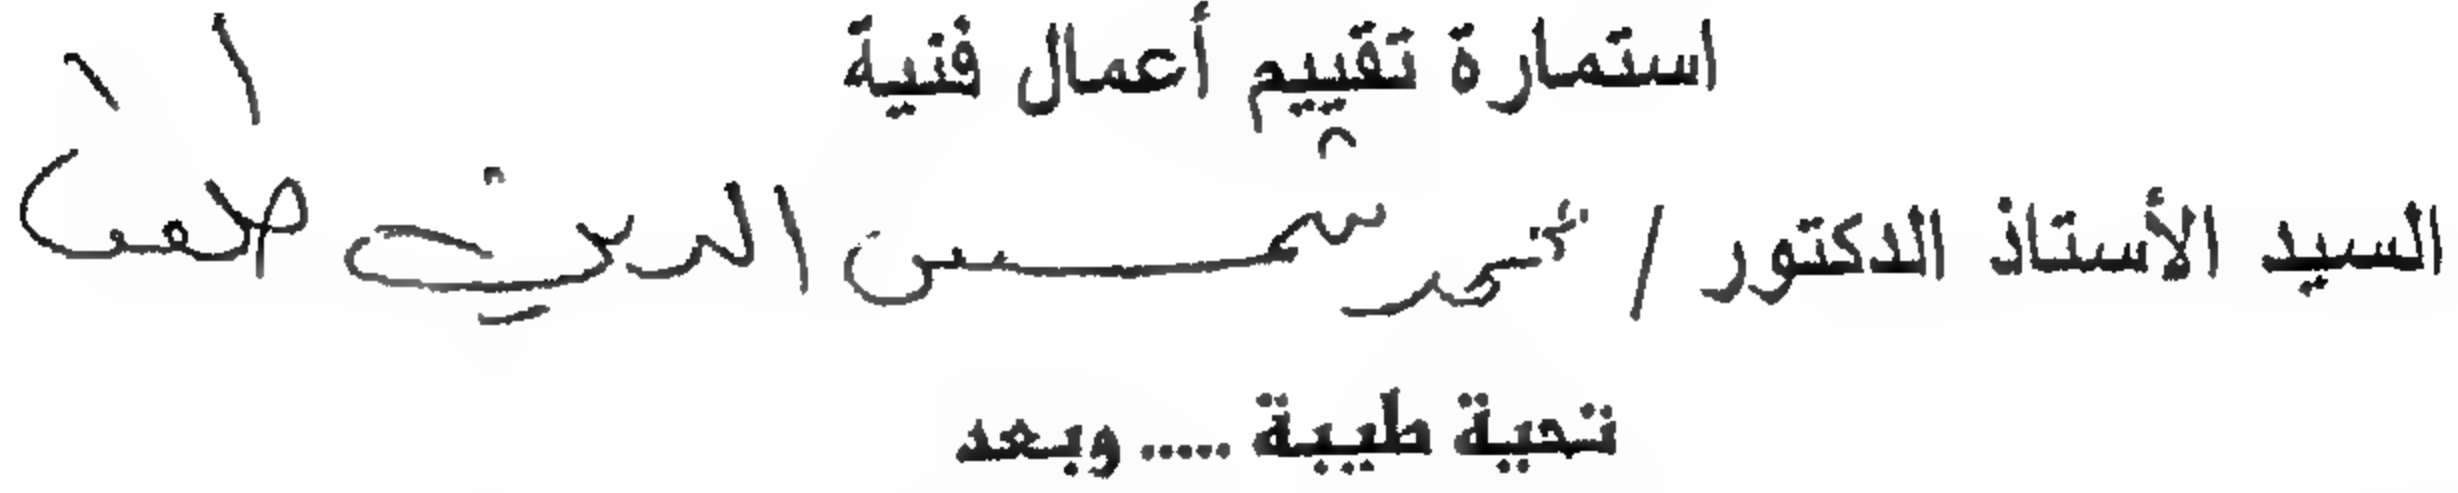 استمارة تقييم أعمال فنية
السيد الأستاذ الدكتور / محمد شمس الدين
تحية طيبة ..... وبعد